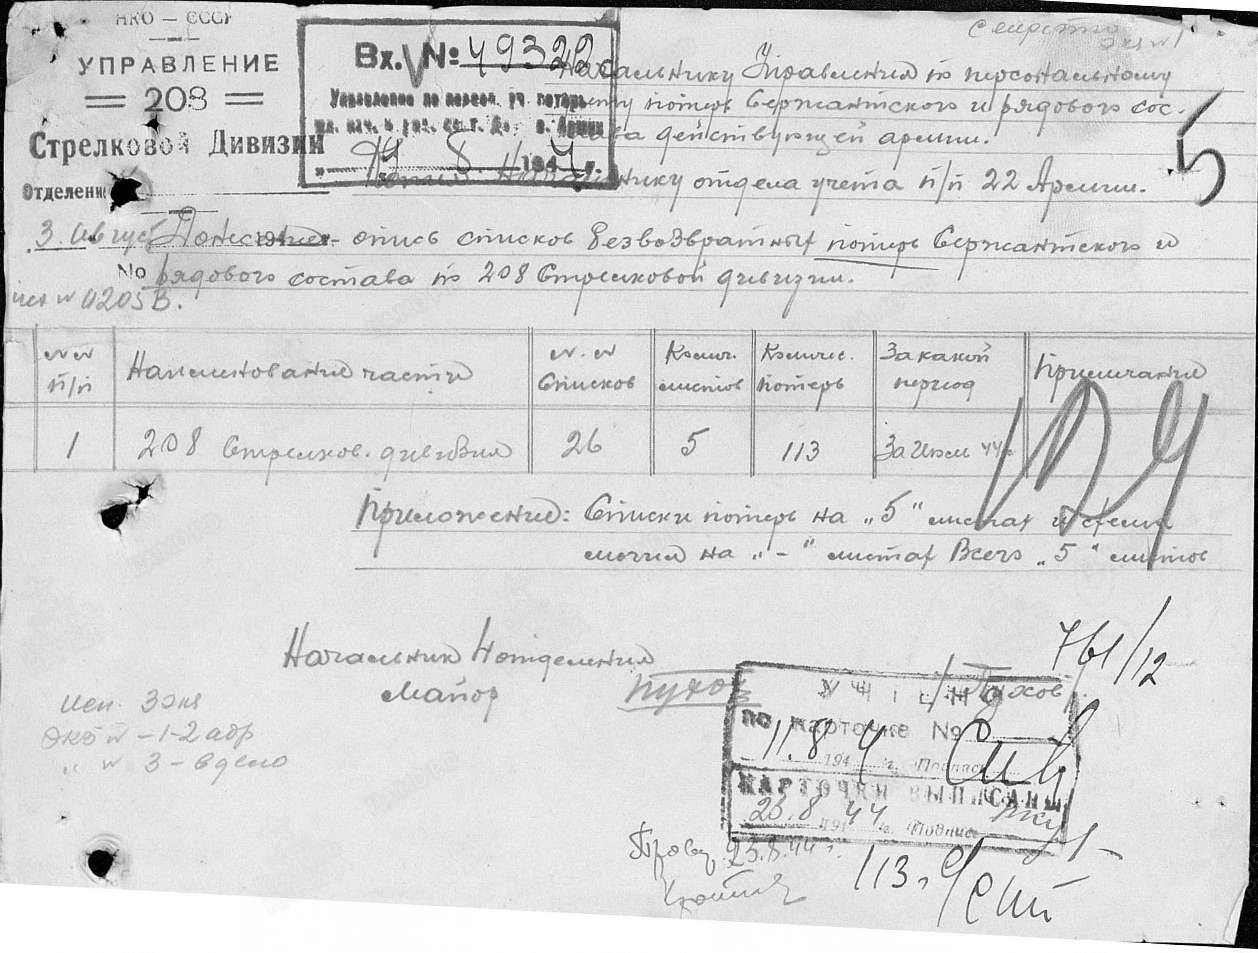 НКО – СССР
УПРАВЛЕНИЕ
208
Стрелковой Дивизии
Отделение
3. август 194
№
исх № 0205 В.
Вх. № 49322
Управление по персон. уч. потерь
8 194 г.
Секретно
экз № 1
Начальнику Управления по персональному
учету потерь Сержантского и рядового сос-
тава действующей армии.
Копия: Начальнику отдела учета п/п 22 Армии.
5
Донесение - опись списков безвозвратных потерь Сержантского и
рядового состава по 208 Стрелковой дивизии.
№ № п/п
Наименование части
№. № списков
Колич. листов
Количес. потерь
За какой период
Примечание
1
208 Стрелков. дивизия
26
5
113
За Июль 44 г.
Приложение: Списки потерь на „5“ листах и схема
могил на „-“ листах Всего „5“ листов
Начальник 4 отделения
Майор
/Пухов/
761/12
исп. 3 экз
экз № – 1-2 адр
„ № 3 – в дело
УЧТЕНО
по карточке №
11.8 194 4 г. Подпись
КАРТОЧКИ ВЫПИСАНЫ
23.8 194 44 г. Подпись
Пров. 23.8.44 г.
113